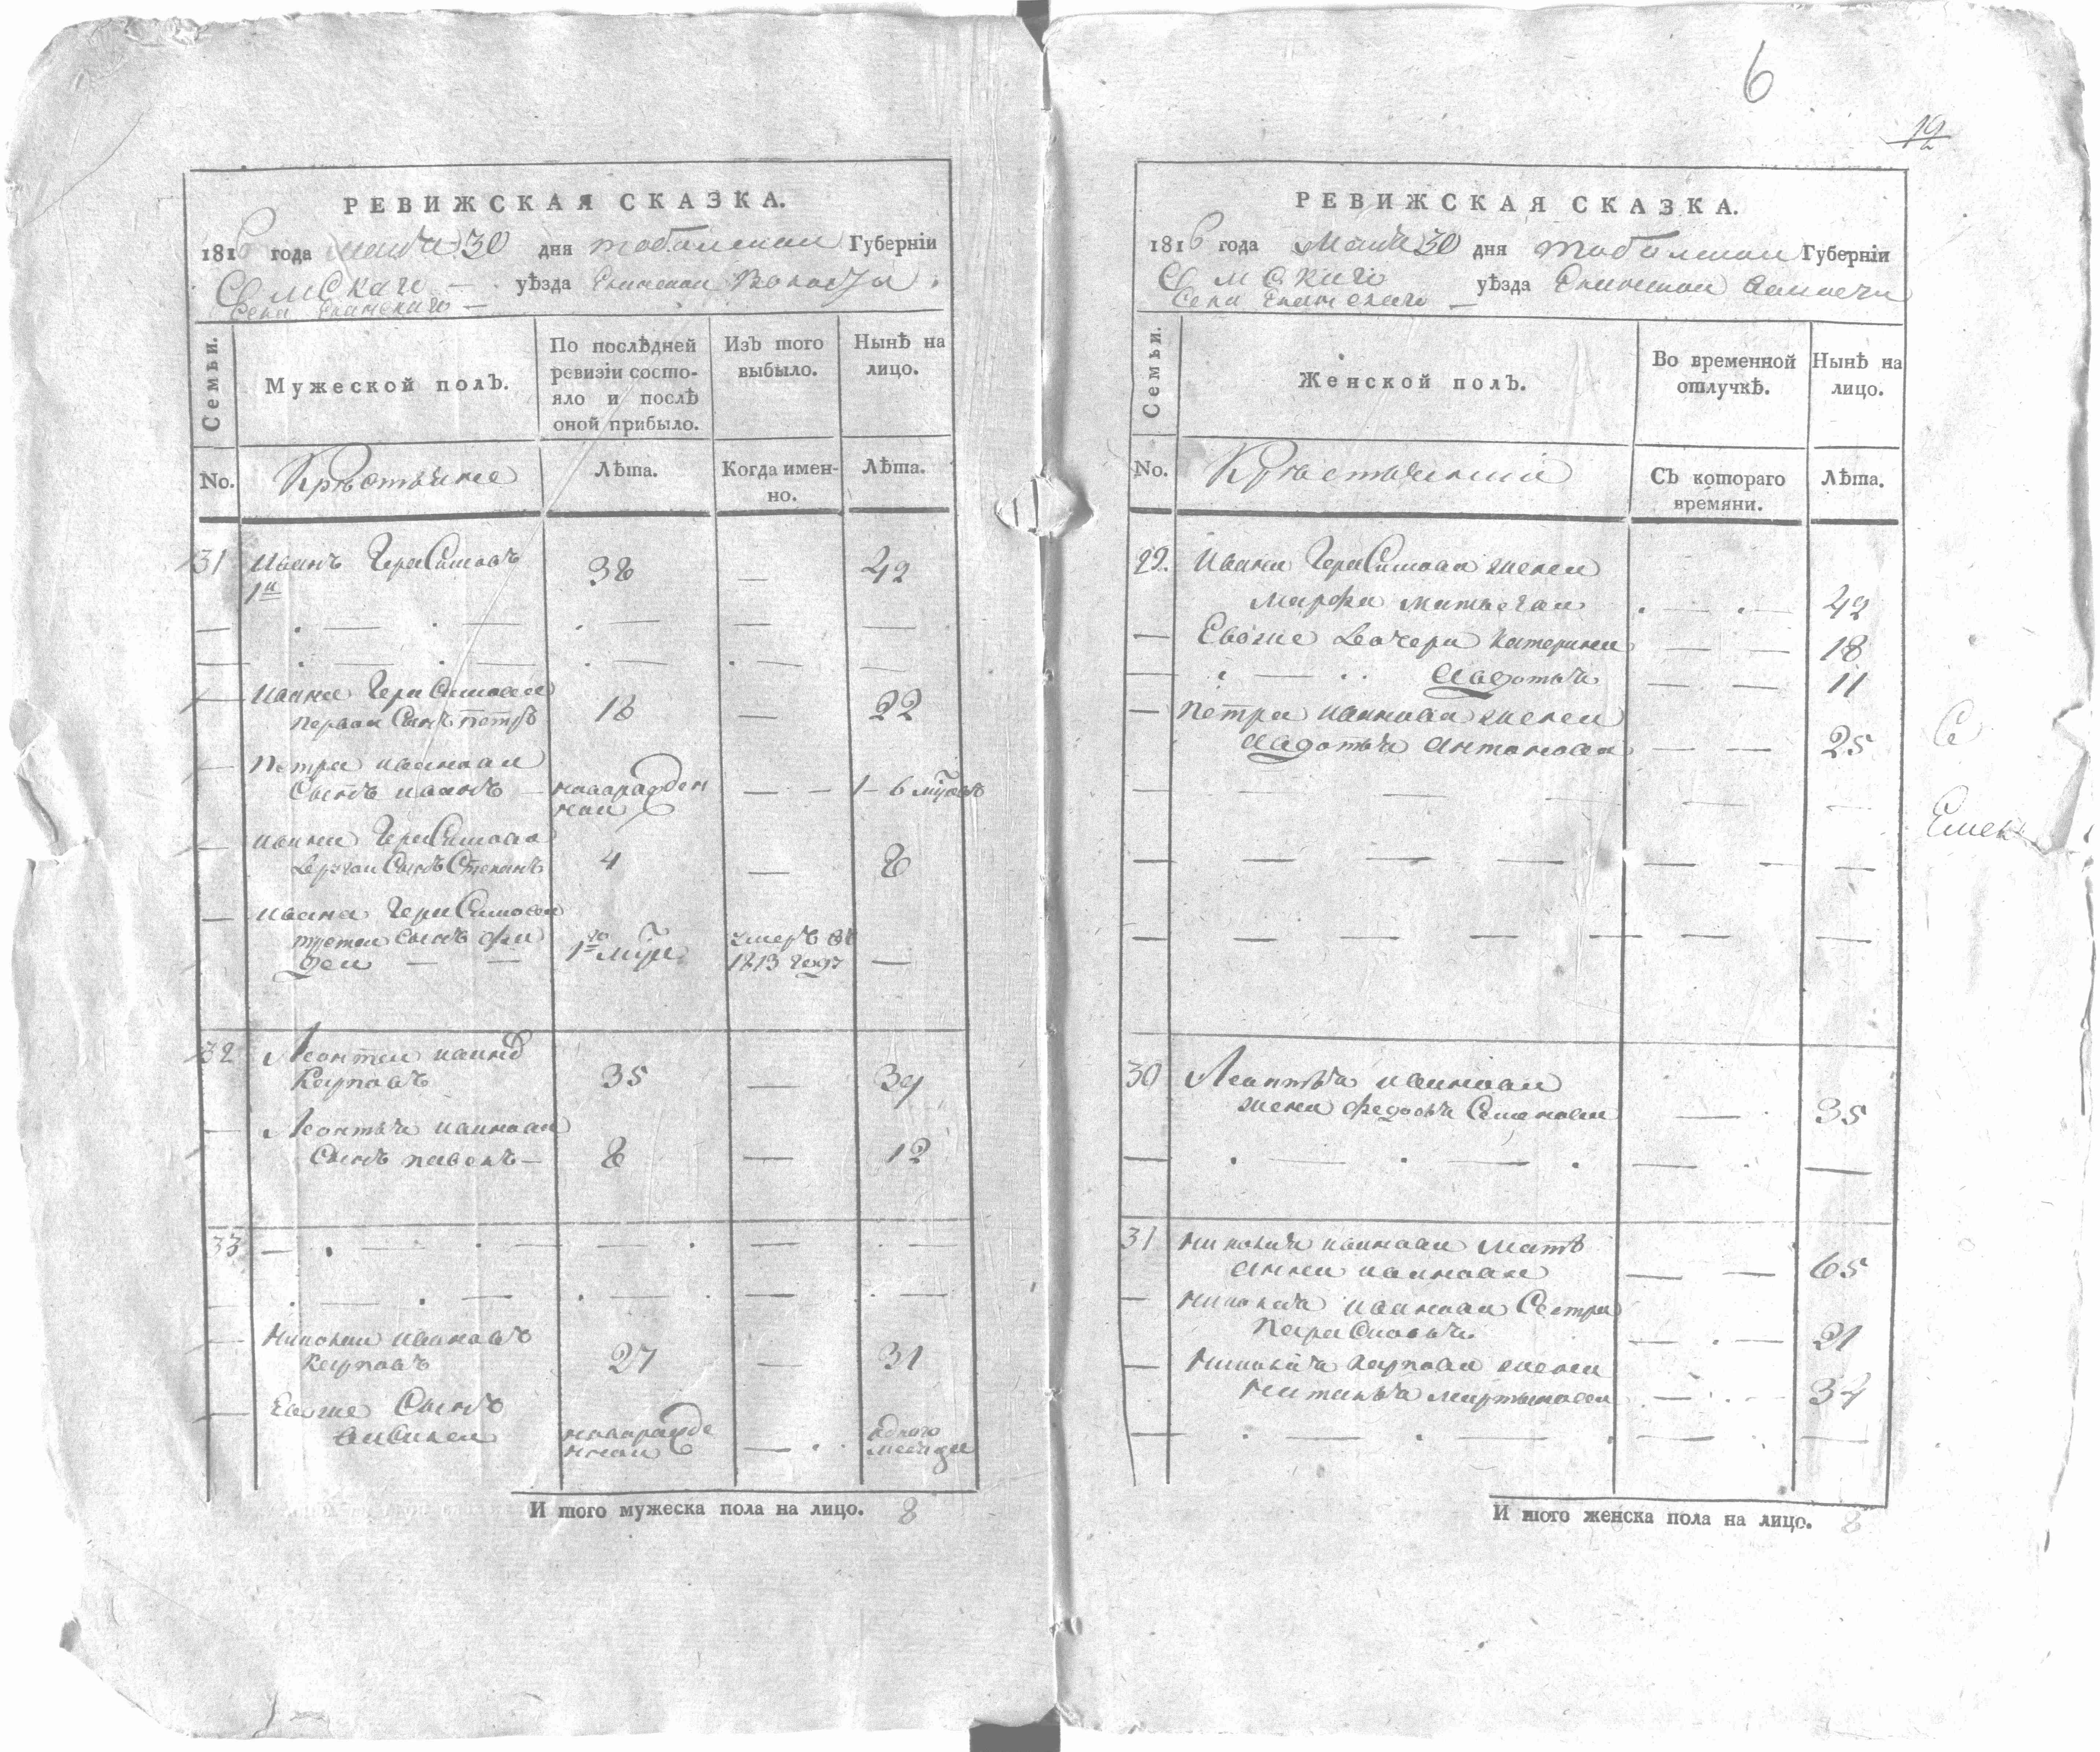 6
19
РЕВИЖСКАЯ СКАЗКА.
1816 года марта 30 дня тобольской Губерніи
Омскаго уѣзда Еланской Волости
Села Еланскаго
Семьи.
Мужеской полЪ.
По послѣдней ревизіи состо-
яло и послѣ
оной прибыло.
ИзЪ того
выбыло.
Нынѣ на
лицо.
No.
Крѣстьяне
Лѣта.
Когда имен-
но.
Лѣта.
31 иванъ Герасимовъ 38 — 42
1й
ивана Герасимова
первой Сынъ петръ 18 — 22
петра иванова
Сынъ иванъ новорожден — 1-6 мѣсяцовъ
ной
ивана Герасимова
другой Сынъ Степанъ 4 — 8
ивана Герасимова
третей сынъ фа умеръ въ
дей 1го мѣся 1813 году —
32 Леонтей ивановъ
Карповъ 35 — 39
Леонтья иванова
Сынъ павелъ 8 — 12
33
Николай ивановъ
Карповъ 27 — 31
Евоже Сынъ одного
новорожде месяца
нной
И того мужеска пола на лицо. 8
РЕВИЖСКАЯ СКАЗКА.
1816 года Марта 30 дня Тобольской Губерніи
Омскаго уѣзда Еланской волости
Села Еланскаго
Семьи.
Женской полЪ.
Во временной
отлучкѣ.
Нынѣ на
лицо.
No.
Крѣстьянки
СЪ котораго
времяни.
Лѣта.
29. ивана Герасимова жена
Марфа матвеева 42
Евоже дочери катерина 18
авдотья 11
петра иванова жена
авдотья антонова 25
30 Леонтья иванова
жена федосья Семенова 35
31 николая иванова мать
анна иванова 65
николая иванова Сестра
парасковья 21
николая карпова жена
наталья мартынова 34
И того женска пола на лицо. 8